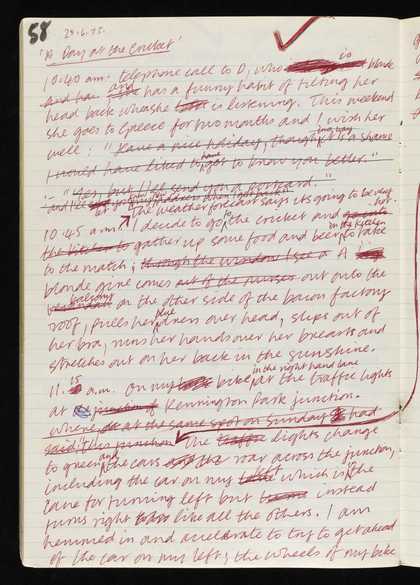 58
29.6.75.
'A Day at the Cricket'
10.40 a.m. telephone call to D, who is blonde
and has and has a funny habit of tilting her
head back when she is listening. This weekend
she goes to Greece for two months and I wish her
well: "Have a nice holiday, though in a way it is a shame
I would have liked to have got to know you better."
- "Yes, but I'll send you a postcard."
The weather forecast says its going to be very hot.
10.45 a.m. I decide to go to the cricket and go into
the kitchen to gather up some food and beer in the kitchen to take
to the match; through the window I see a A
blonde girl comes out of the nurses out onto the
balcony on the other side of the bacon factory
roof, pulls her blue dress over head, slips out of
her bra, runs her hands over her breasts and
stretches out on her back in the sunshine.
11.15 a.m. On my bike, in the right hand lane at the traffic lights
at junction of Kennington Park junction.
where at the same spot on Sunday I had
said this junction The traffic lights change
to green and the cars roar across the junction,
including the car on my left which is in the
lane for turning left but instead
turns right like all the others. I am
hemmed in and accelerate to try to get ahead
of the car on my left; the wheels of my bike